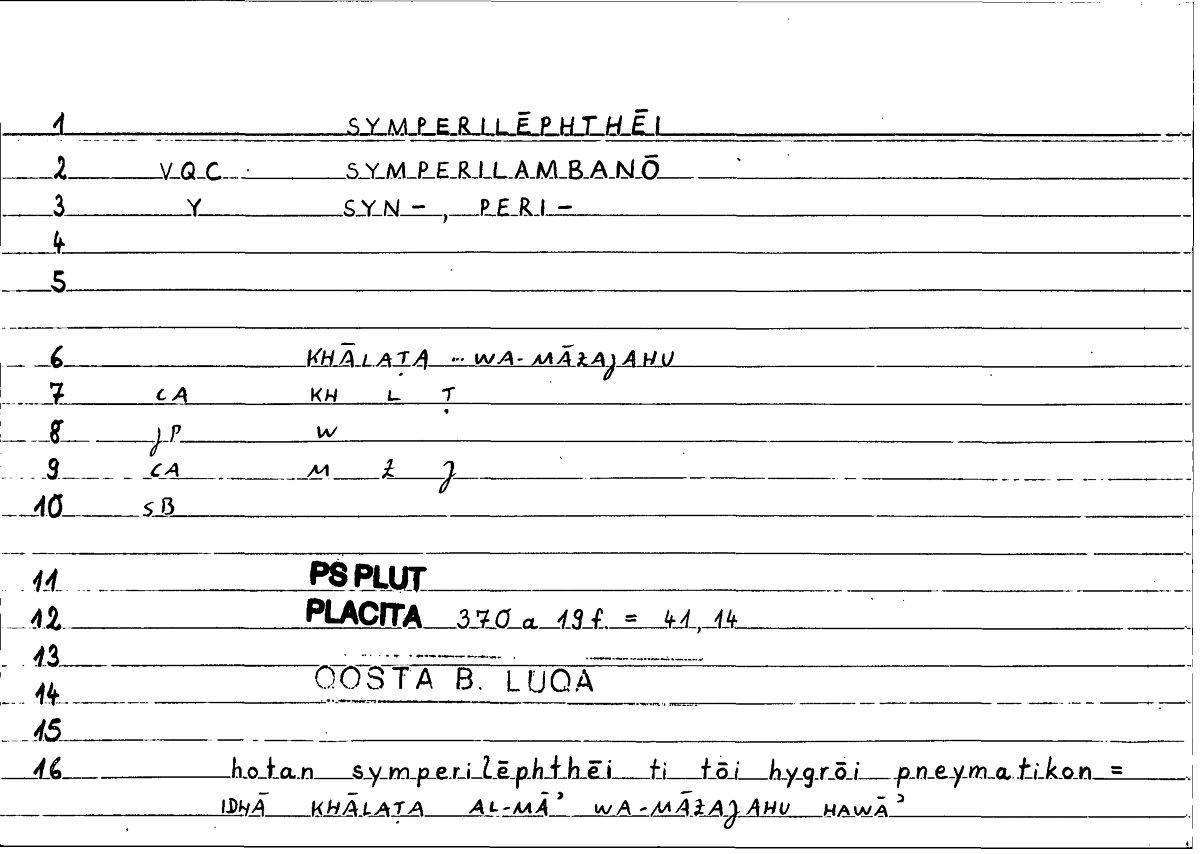 1 SYMPERILĒPHTHĒI
2 VQC SYMPERILAMBANŌ
3 Y SYN-, PERI-
4
5
6 KHĀLAṬA ... WA-MĀZAJAHU
7 CA KH L Ṭ
8 JP W
9 CA M Z J
10 SB
11 PS PLUT
12 PLACITA 370 a 19 f. = 41, 14
13
14 QOSTA B. LUQA
15
16 hotan symperilēphthēi ti tōi hygrōi pneymatikon =
IDHĀ KHĀLAṬA AL-MĀʾ WA-MĀZAJAHU HAWĀʾ